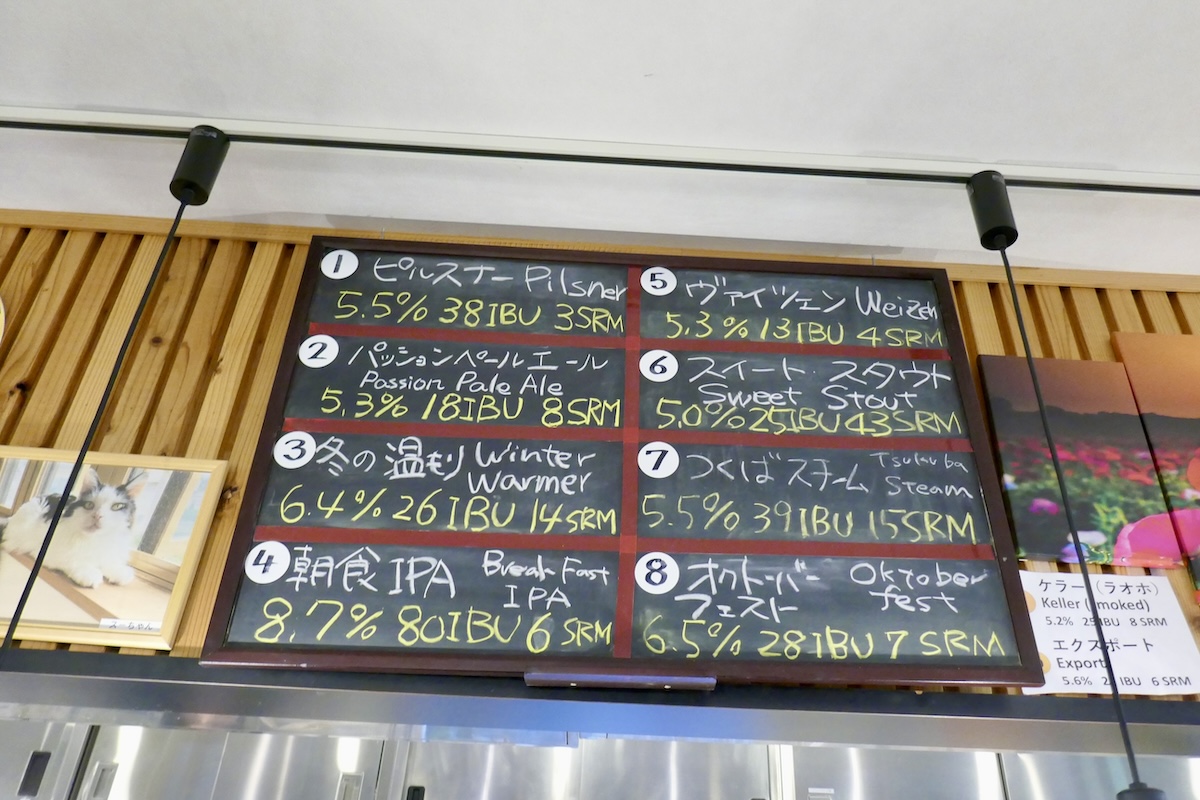 1 ピルスナー Pilsner
5.5% 38IBU 3SRM
2 パッションペールエール
Passion Pale Ale
5.3% 18IBU 8SRM
3 冬の温もり Winter
Warmer
6.4% 26IBU 14SRM
4 朝食IPA Break Fast
IPA
8.7% 80IBU 6SRM
5 ヴァイツェン Weizen
5.3% 13IBU 4SRM
6 スイート・スタウト
Sweet Stout
5.0% 25IBU 43SRM
7 つくばスチーム Tsukuba
Steam
5.5% 39IBU 15SRM
8 オクトーバー Oktober
フェスト fest
6.5% 28IBU 7SRM
ケラー (ラオホ)
Keller (smoked)
5.2% 25IBU 8SRM
エクスポート
Export
5.6% IBU 6SRM
えーちゃん